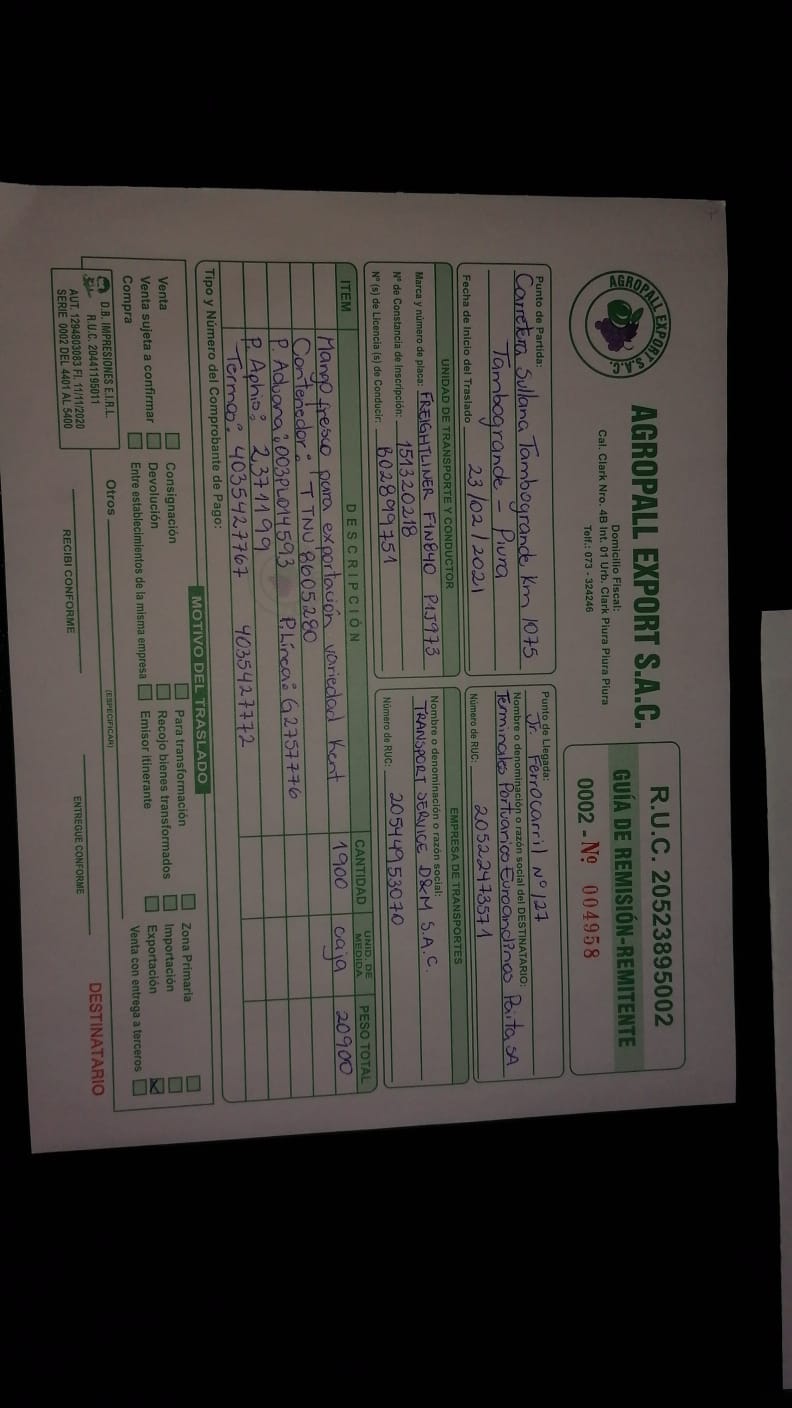 AGROPALL EXPORT S.A.C.
AGROPALL EXPORT S.A.C.
Domicilio Fiscal:
Cal. Clark Nro. 4B Int. 01 Urb. Clark Piura Piura Piura
Telf.: 073 - 324246
R.U.C. 20523895002
GUÍA DE REMISIÓN-REMITENTE
0002 - Nº 004958
Punto de Partida:
Carretera Sullana Tambogrande Km 1075
Tambogrande - Piura
Fecha de Inicio del Traslado 23/02/2021
Punto de Llegada:
Jr. Ferrocarril Nº 127
Nombre o denominación o razón social del DESTINATARIO:
Terminales Portuarios Euroandinos Paita SA
Número de RUC: 20522473571
UNIDAD DE TRANSPORTE Y CONDUCTOR
Marca y número de placa: FREIGHTLINER F1N840 P1J973
Nº de Constancia de Inscripción: 151320218
Nº (s) de Licencia (s) de Conducir: B02899751
EMPRESA DE TRANSPORTES
Nombre o denominación o razón social:
TRANSPORT SERVICE D&M S.A.C.
Número de RUC: 20544953070
ITEM DESCRIPCIÓN CANTIDAD UNID. DE MEDIDA PESO TOTAL
Mango fresco para exportación variedad Kent 1900 caja 20900
Contenedor: TTNU 8605280
P. Aduana: 003PL014593 P.Línea: G2757776
P. Aphis: 2371199
Termog: 4035427767 4035427772
Tipo y Número del Comprobante de Pago:
MOTIVO DEL TRASLADO
Venta Consignación Para transformación Zona Primaria
Venta sujeta a confirmar Devolución Recojo bienes transformados Importación
Compra Entre establecimientos de la misma empresa Emisor itinerante Exportación X
Venta con entrega a terceros
Otros
(ESPECIFICAR)
D.B. IMPRESIONES E.I.R.L.
R.U.C. 20441195011
AUT. 1294803083 FI. 11/11/2020
SERIE 0002 DEL 4401 AL 5400
RECIBI CONFORME
ENTREGUE CONFORME
DESTINATARIO